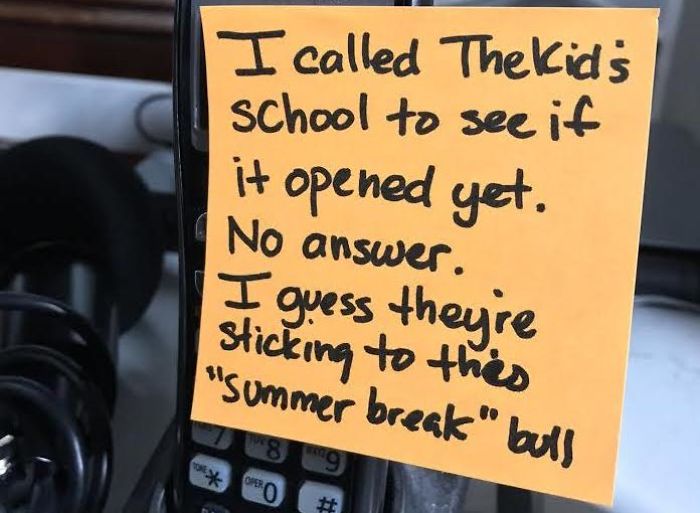 I called The Kid's
school to see if
it opened yet.
No answer.
I guess they're
sticking to this
"summer break" bull
7 8 9
TONE * OPER 0 #